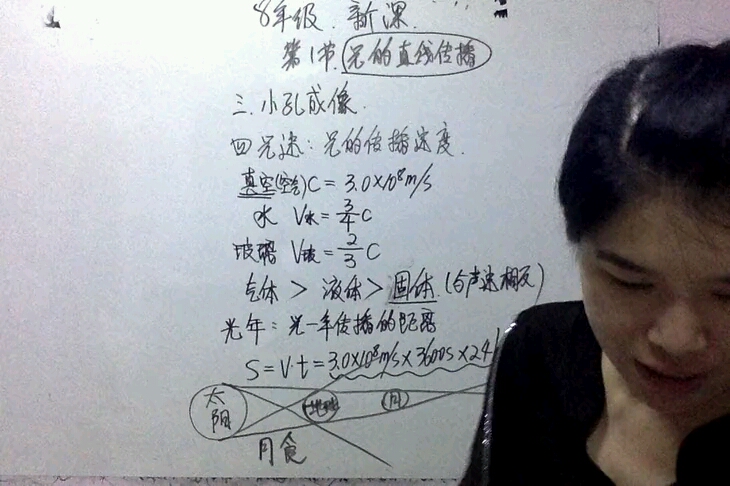 8年级 新课
第1节 光的直线传播
三.小孔成像.
四 光速：光的传播速度.
真空(空气)C = 3.0×10⁸m/s
水 V水 = 3/4 C
玻璃 V玻 = 2/3 C
气体 > 液体 > 固体.(与声速相反)
光年：光一年传播的距离
S = V·t = 3.0×10⁸m/s × 3600s × 24
太阳 地球 月
月食